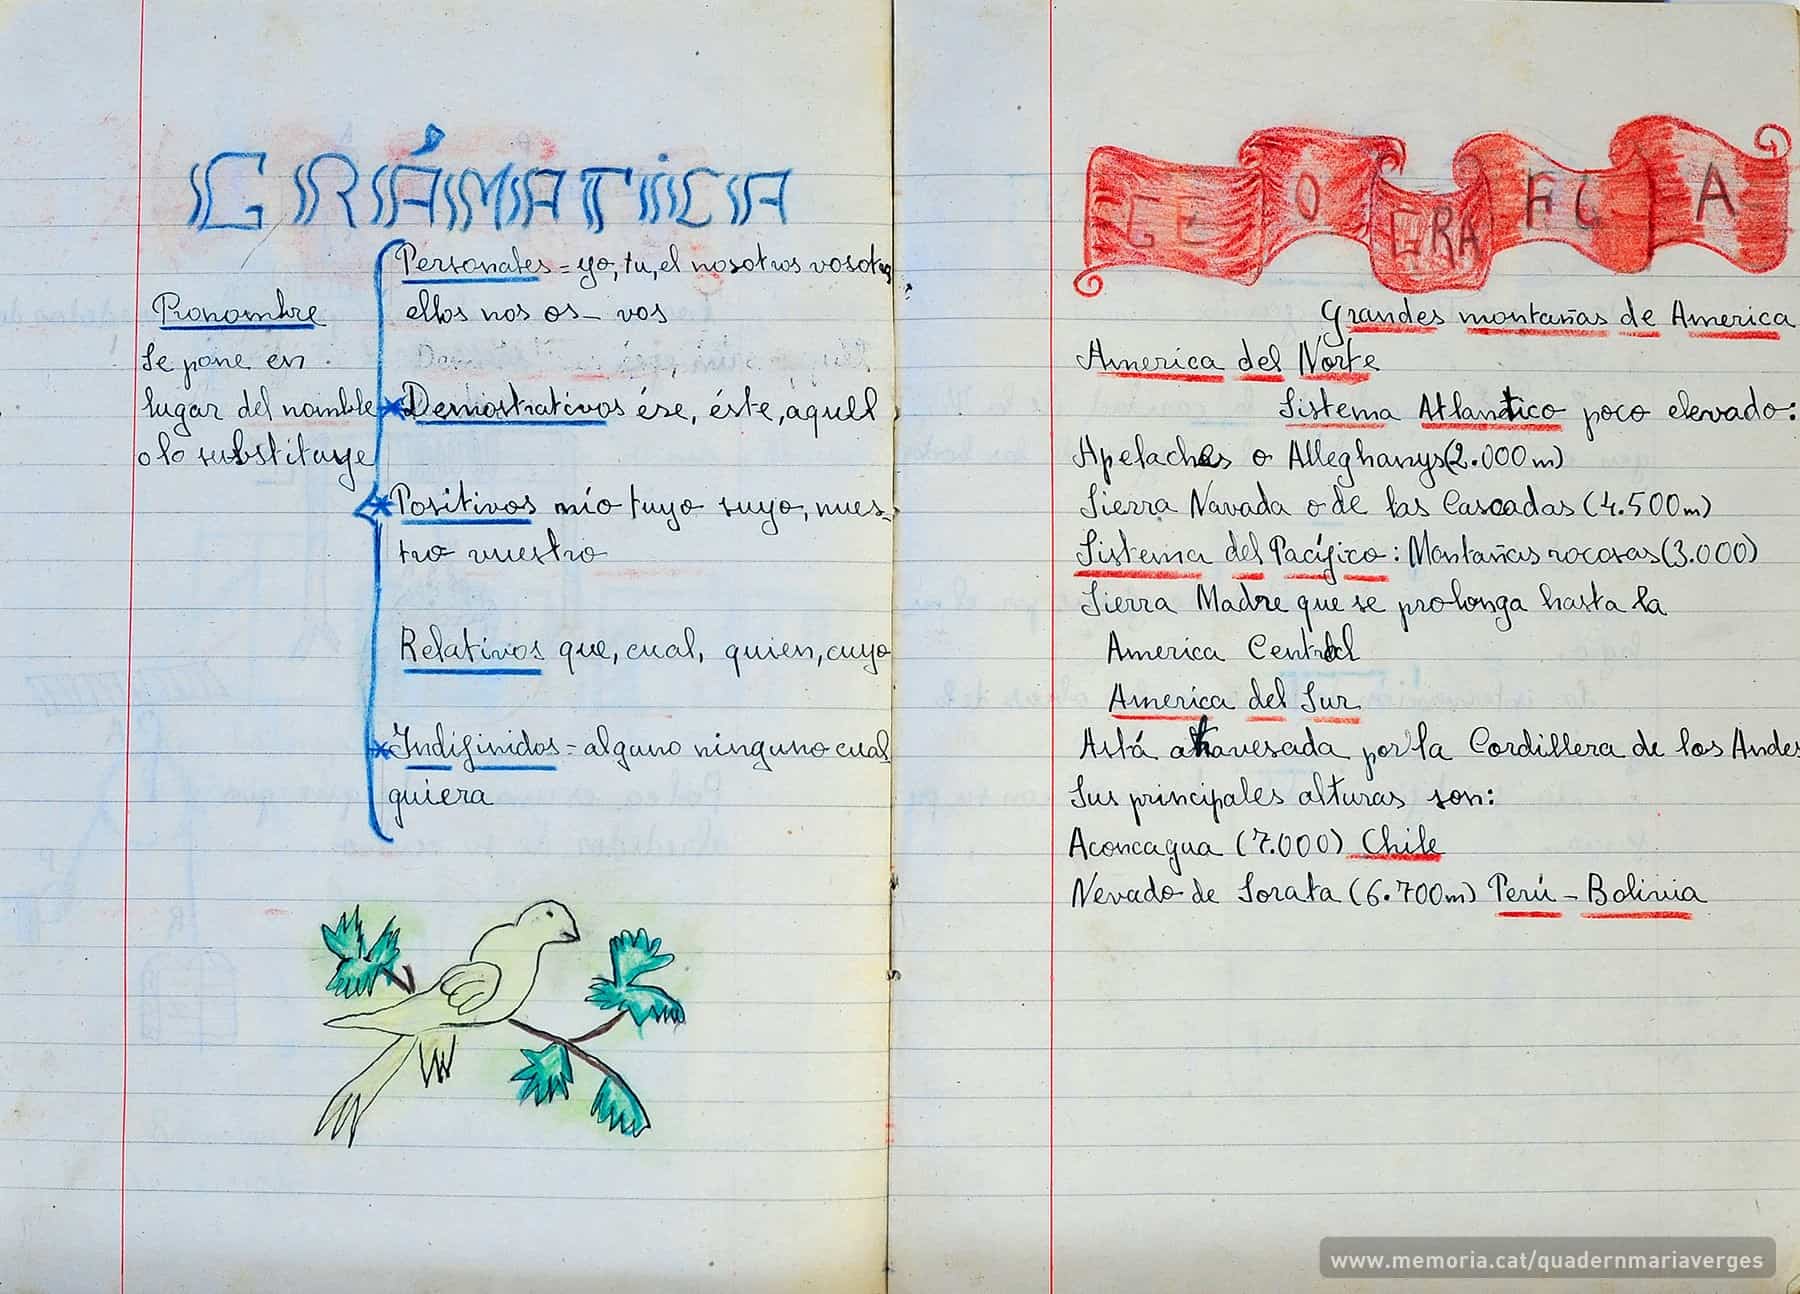 GRÁMATICA
Pronombre
Se pone en
lugar del nombre
o lo substituye
Personales = yo, tu, el nosotros vosotros
ellos nos os - vos
Demostrativos ése, éste, aquell
Positivos mío tuyo suyo, nues-
tro vuestro
Relativos que, cual, quien, cuyo
Indifinidos = alguno ninguno cual
quiera
GEOGRAFIA
Grandes montañas de America
America del Norte
Sistema Atlantico poco elevado:
Apelaches o Alleghanys (2.000m)
Sierra Navada o de las Cascadas (4.500m)
Sistema del Pacífico: Montañas rocosas (3.000)
Sierra Madre que se prolonga hasta la
America Central
America del Sur
Astá atravesada por la Cordillera de los Andes
Sus principales alturas son:
Aconcagua (7.000) Chile
Nevado de Sorata (6.700m) Perú - Bolivia
www.memoria.cat/quadernmariaverges